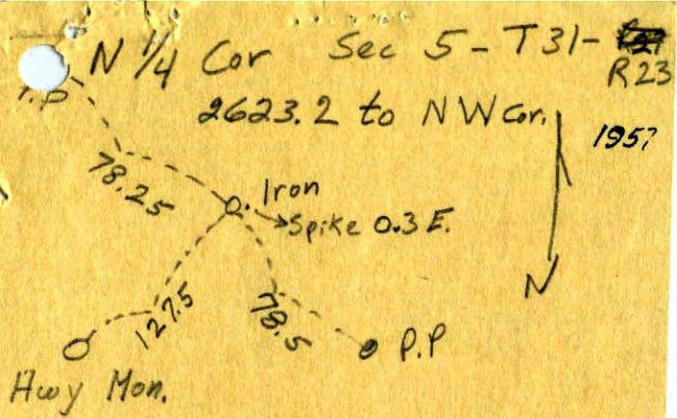 N 1/4 Cor Sec 5 - T31 -
R23
2623.2 to NW Cor.
195?
P.P
78.25
O. Iron
Spike 0.3 E.
127.5
78.5
P.P
Hwy Mon.
N